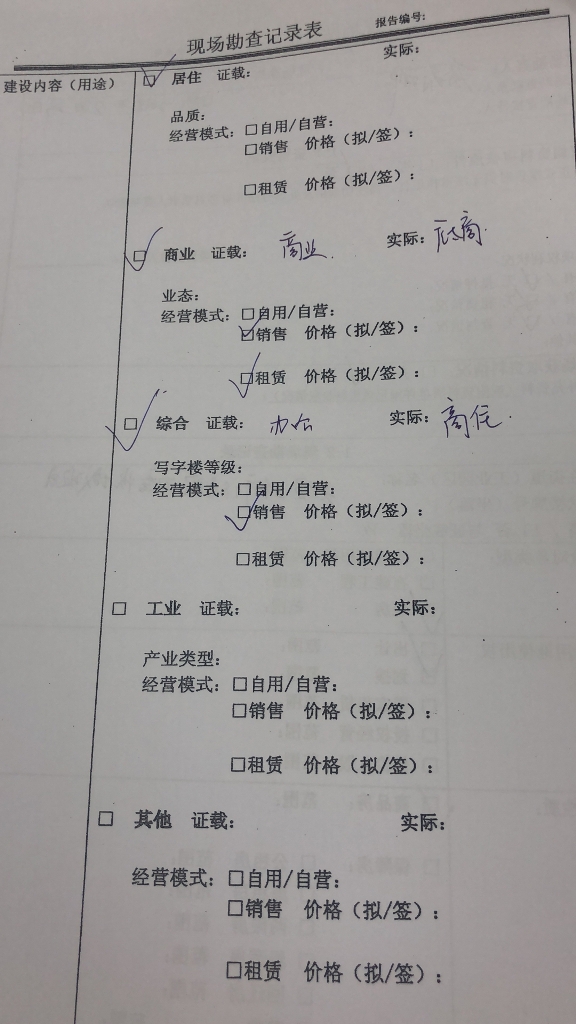 现场勘查记录表 报告编号:
建设内容（用途） ☑ 居住 证载: 实际:
品质:
经营模式: □自用/自营:
□销售 价格（拟/签）:
□租赁 价格（拟/签）:
☑ 商业 证载: 商业 实际: 底商
业态:
经营模式: □自用/自营:
☑销售 价格（拟/签）:
☑租赁 价格（拟/签）:
☑ 综合 证载: 办公 实际: 商住
写字楼等级:
经营模式: □自用/自营:
☑销售 价格（拟/签）:
□租赁 价格（拟/签）:
□ 工业 证载: 实际:
产业类型:
经营模式: □自用/自营:
□销售 价格（拟/签）:
□租赁 价格（拟/签）:
□ 其他 证载: 实际:
经营模式: □自用/自营:
□销售 价格（拟/签）:
□租赁 价格（拟/签）: